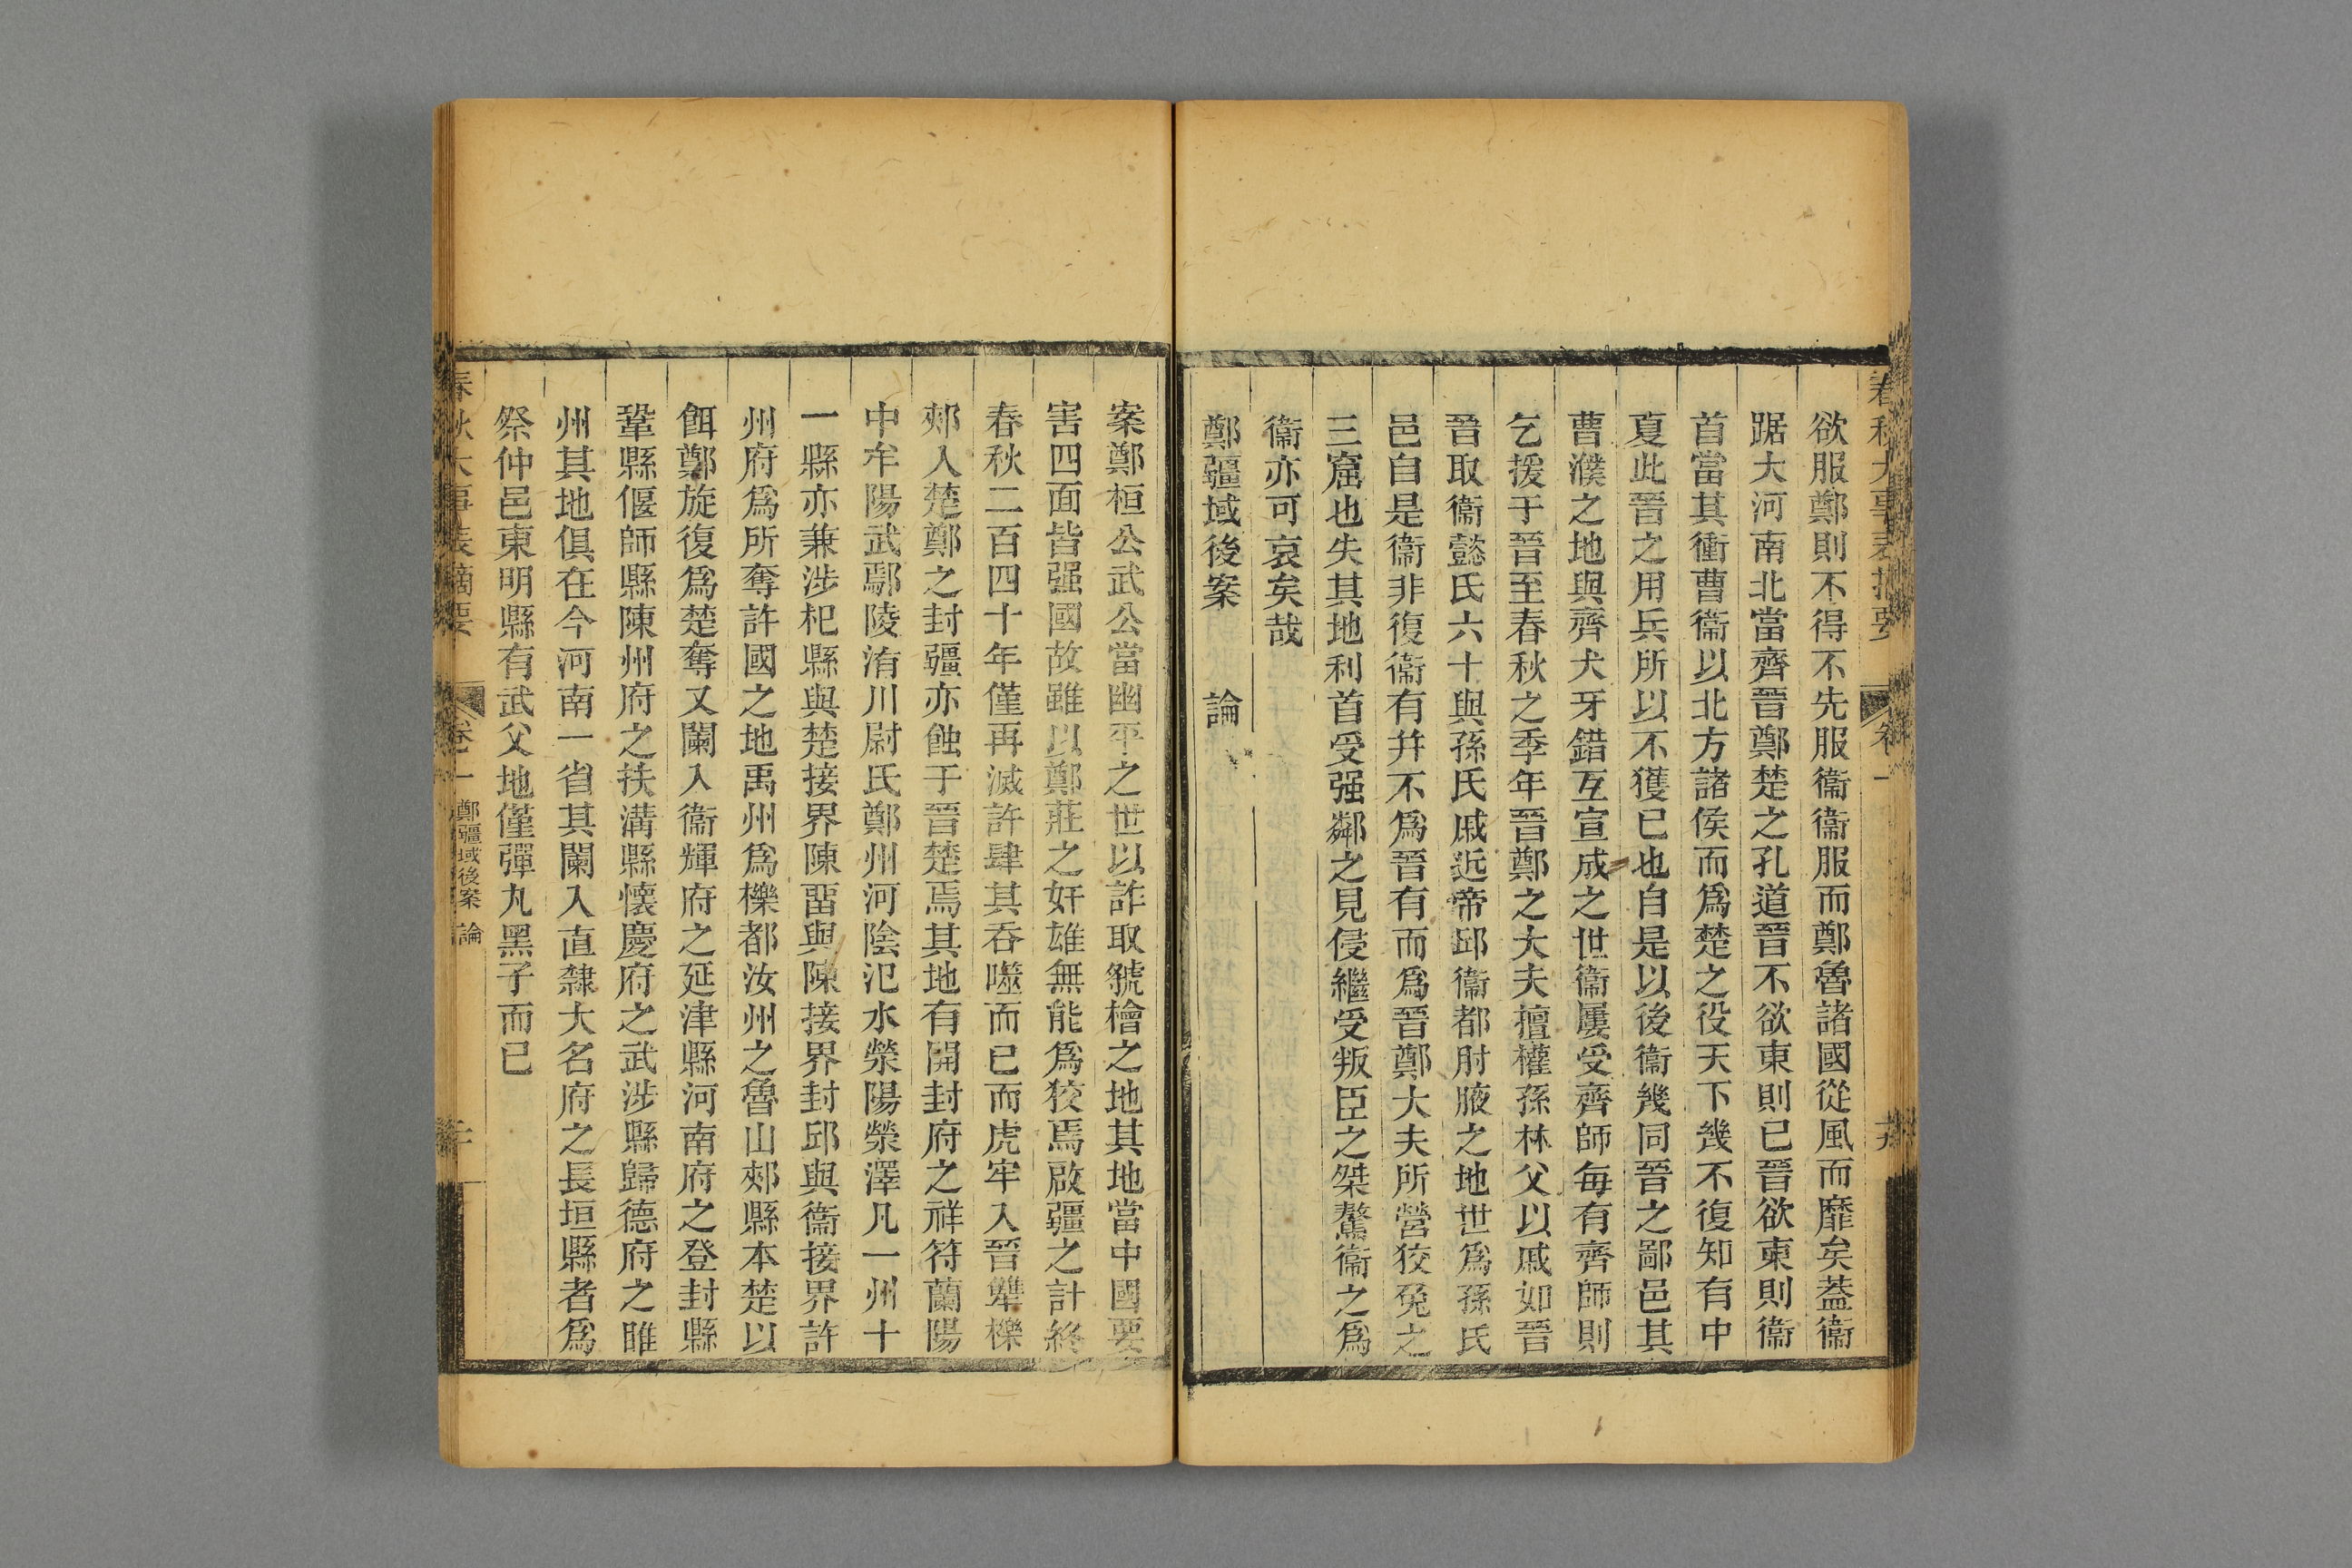 春秋大事表摘要 卷一
欲服鄭則不得不先服衞衞服而鄭魯諸國從風而靡矣葢衞
踞大河南北當齊晉鄭楚之孔道晉不欲東則已晉欲東則衞
首當其衝曹衞以北方諸侯而爲楚之役天下幾不復知有中
夏此晉之用兵所以不獲已也自是以後衞幾同晉之鄙邑其
曹濮之地與齊犬牙錯互宣成之世衞屢受齊師每有齊師則
乞援于晉至春秋之季年晉鄭之大夫擅權孫林父以戚如晉
晉取衞懿氏六十與孫氏戚近帝邱衞都肘腋之地世爲孫氏
邑自是衞非復衞有并不爲晉有而爲晉鄭大夫所營狡兔之
三窟也失其地利首受强鄰之見侵繼受叛臣之桀驁衞之爲
衞亦可哀矣哉
鄭疆域後案 論
案鄭桓公武公當幽平之世以詐取虢檜之地其地當中國要
害四面皆强國故雖以鄭莊之奸雄無能爲狡焉啟疆之計終
春秋二百四十年僅再滅許肆其吞噬而已而虎牢入晉犨櫟
郟入楚鄭之封疆亦蝕于晉楚焉其地有開封府之祥符蘭陽
中牟陽武鄢陵洧川尉氏鄭州河陰汜水滎陽滎澤凡一州十
一縣亦兼涉杞縣與楚接界陳畱與陳接界封邱與衞接界許
州府爲所奪許國之地禹州爲櫟都汝州之魯山郟縣本楚以
餌鄭旋復爲楚奪又闌入衞輝府之延津縣河南府之登封縣
鞏縣偃師縣陳州府之扶溝縣懷慶府之武涉縣歸德府之睢
州其地俱在今河南一省其闌入直隸大名府之長垣縣者爲
祭仲邑東明縣有武父地僅彈丸黑子而已
春秋大事表摘要 卷一 鄭疆域後案 論